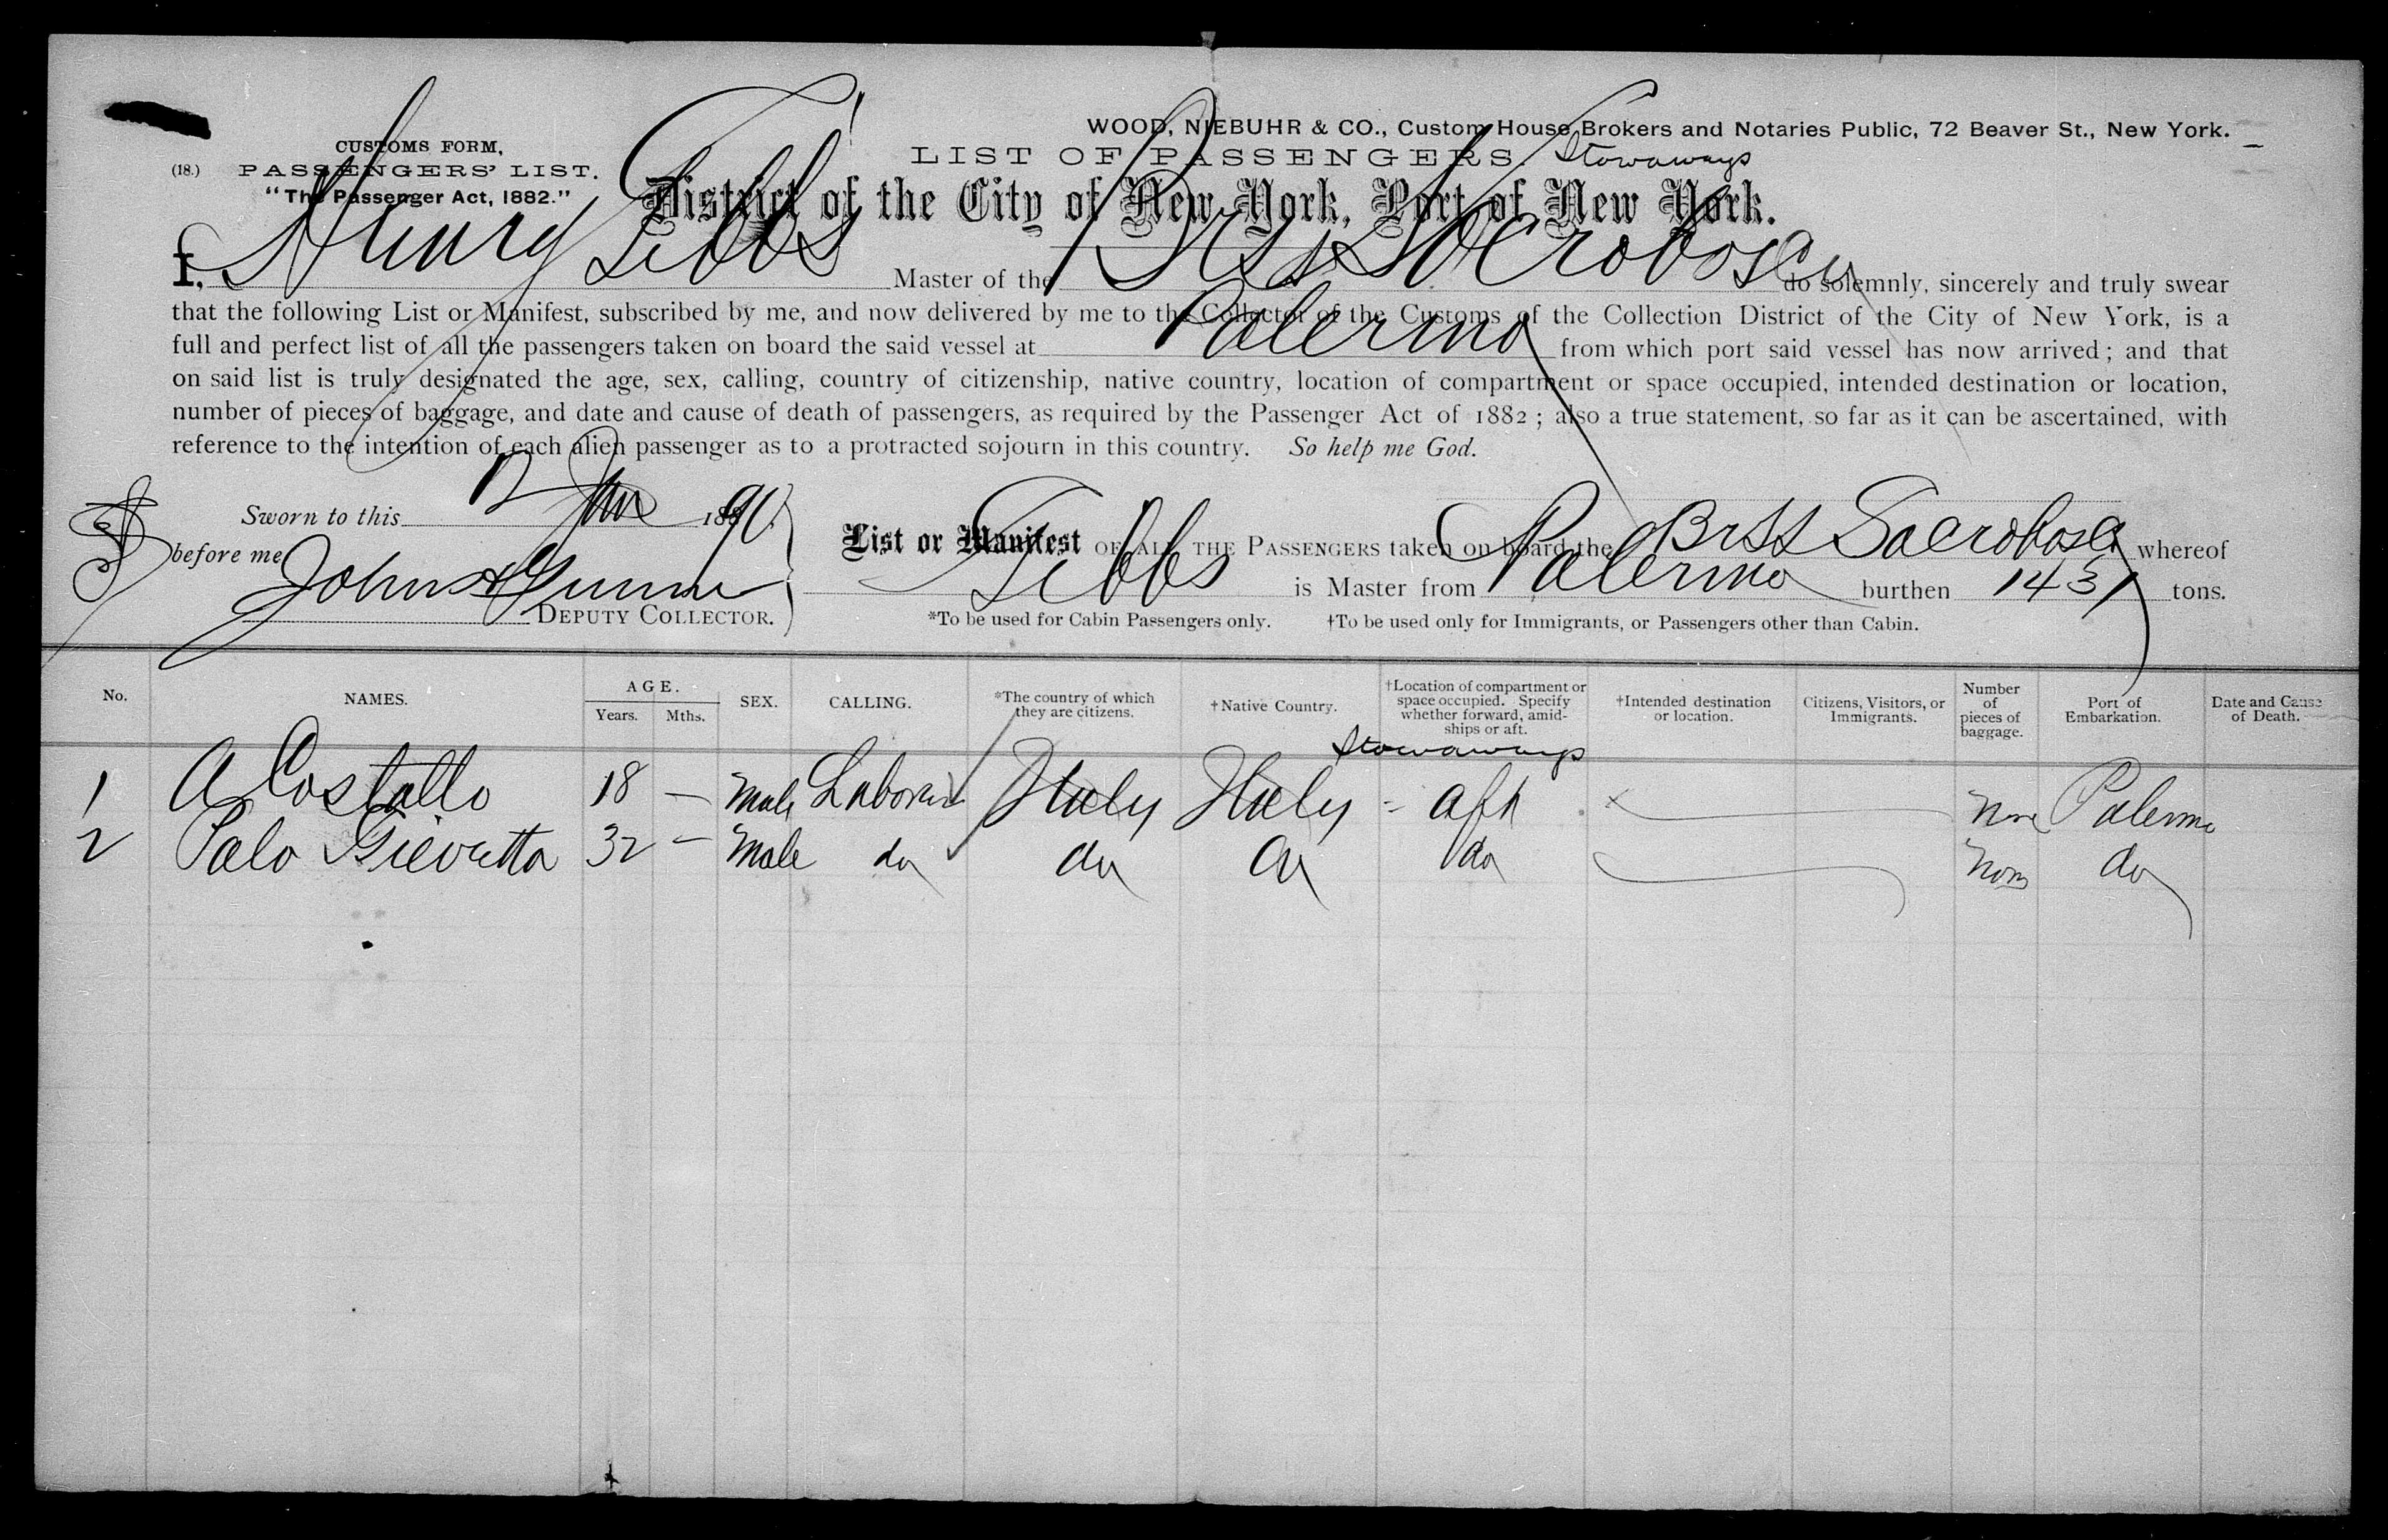 WOOD, NIEBUHR & CO., Custom House Brokers and Notaries Public, 72 Beaver St., New York.
CUSTOMS FORM,
(18.) PASSENGERS' LIST.
"The Passenger Act, 1882."
LIST OF PASSENGERS. Stowaways
District of the City of New York, Port of New York.
I, Henry Tibbs Master of the Br SS Sacrobosco do solemnly, sincerely and truly swear
that the following List or Manifest, subscribed by me, and now delivered by me to the Collector of the Customs of the Collection District of the City of New York, is a
full and perfect list of all the passengers taken on board the said vessel at Palermo from which port said vessel has now arrived; and that
on said list is truly designated the age, sex, calling, country of citizenship, native country, location of compartment or space occupied, intended destination or location,
number of pieces of baggage, and date and cause of death of passengers, as required by the Passenger Act of 1882; also a true statement, so far as it can be ascertained, with
reference to the intention of each alien passenger as to a protracted sojourn in this country. So help me God.
Sworn to this 12 188 90
before me John Gunner
DEPUTY COLLECTOR.
List or Manifest OF ALL THE PASSENGERS taken on board the Br SS Sacrobosco whereof
Tibbs is Master from Palermo burthen 1431 tons.
*To be used for Cabin Passengers only. †To be used only for Immigrants, or Passengers other than Cabin.
No. NAMES. AGE. Years. Mths. SEX. CALLING. *The country of which they are citizens. †Native Country. †Location of compartment or space occupied. Specify whether forward, amidships or aft. †Intended destination or location. Citizens, Visitors, or Immigrants. Number of pieces of baggage. Port of Embarkation. Date and Cause of Death.
Stowaways
1 A Costallo 18 — Male Laborer Italy Italy - aft None Palermo
2 Palo 32 — Male do do do do None do